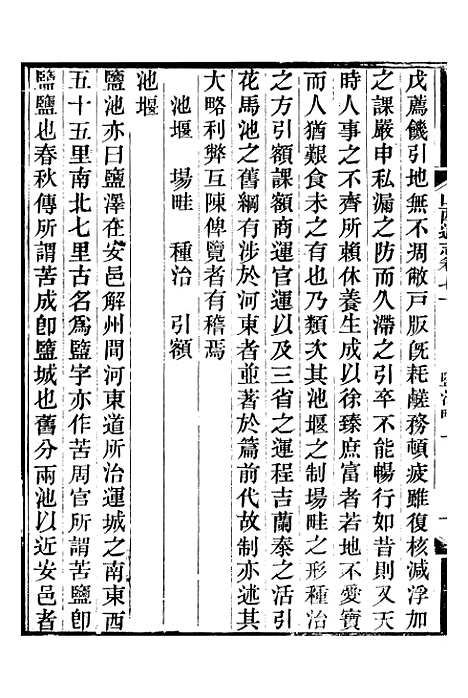 戊薦饑引地無不凋敝戸版旣耗鹺務頓疲雖復核減浮加
之課嚴申私漏之防而久滯之引卒不能暢行如昔則又天
時人事之不齊所賴休養生成以徐臻庶富者若地不愛寶
而人猶艱食未之有也乃類次其池堰之制場畦之形種治
之方引額課額商運官運以及三省之運程吉蘭泰之活引
花馬池之舊綱有涉於河東者並著於篇前代故制亦述其
大略利弊互陳俾覽者有稽焉
池堰　場畦　種治　引額
池堰
鹽池亦曰鹽澤在安邑解州間河東道所治運城之南東西
五十五里南北七里古名爲鹽字亦作苦周官所謂苦鹽卽
鹽鹽也春秋傳所謂苦成卽鹽城也舊分兩池以近安邑者